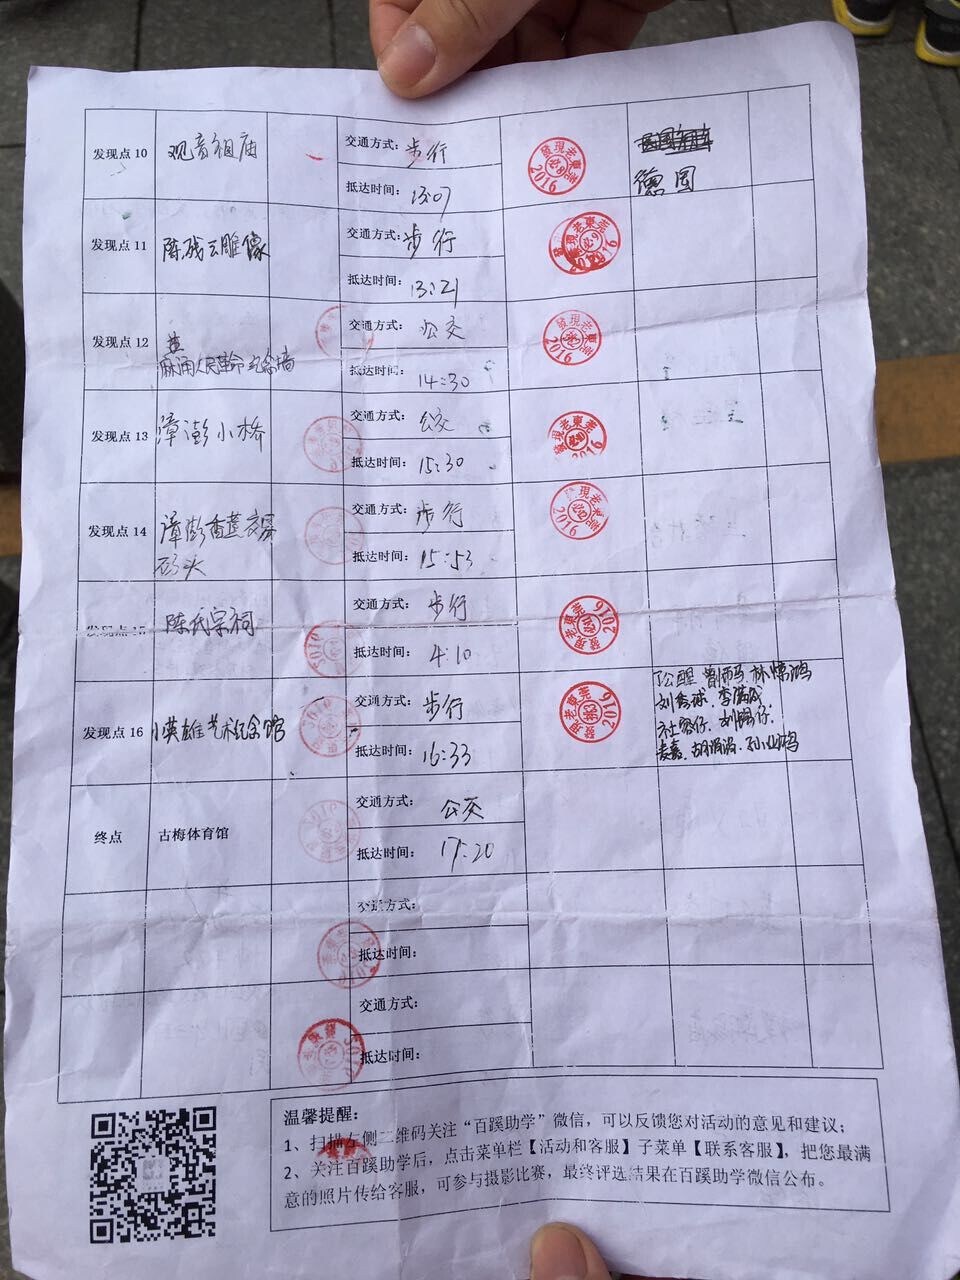 发现点 10
观音祖庙
交通方式： 步行
抵达时间： 13:07
發現老東莞
2016
德国
发现点 11
陈残云雕像
交通方式： 步行
抵达时间： 13:21
發現老東莞
2016
发现点 12
麻涌人民革命纪念墙
交通方式： 公交
抵达时间： 14:30
發現老東莞
2016
发现点 13
漳澎小桥
交通方式： 公交
抵达时间： 15:30
發現老東莞
2016
发现点 14
漳澎香蕉交易
码头
交通方式： 步行
抵达时间： 15:53
發現老東莞
2016
发现点 15
陈氏宗祠
交通方式： 步行
抵达时间： 4:10
發現老東莞
2016
发现点 16
小英雄艺术纪念馆
交通方式： 步行
抵达时间： 16:33
發現老東莞
2016
终点
古梅体育馆
交通方式： 公交
抵达时间： 17:20
交通方式：
抵达时间：
交通方式：
抵达时间：
温馨提醒：
1、扫描左侧二维码关注“百蹊助学”微信，可以反馈您对活动的意见和建议；
2、关注百蹊助学后，点击菜单栏【活动和客服】子菜单【联系客服】，把您最满
意的照片传给客服，可参与摄影比赛，最终评选结果在百蹊助学微信公布。